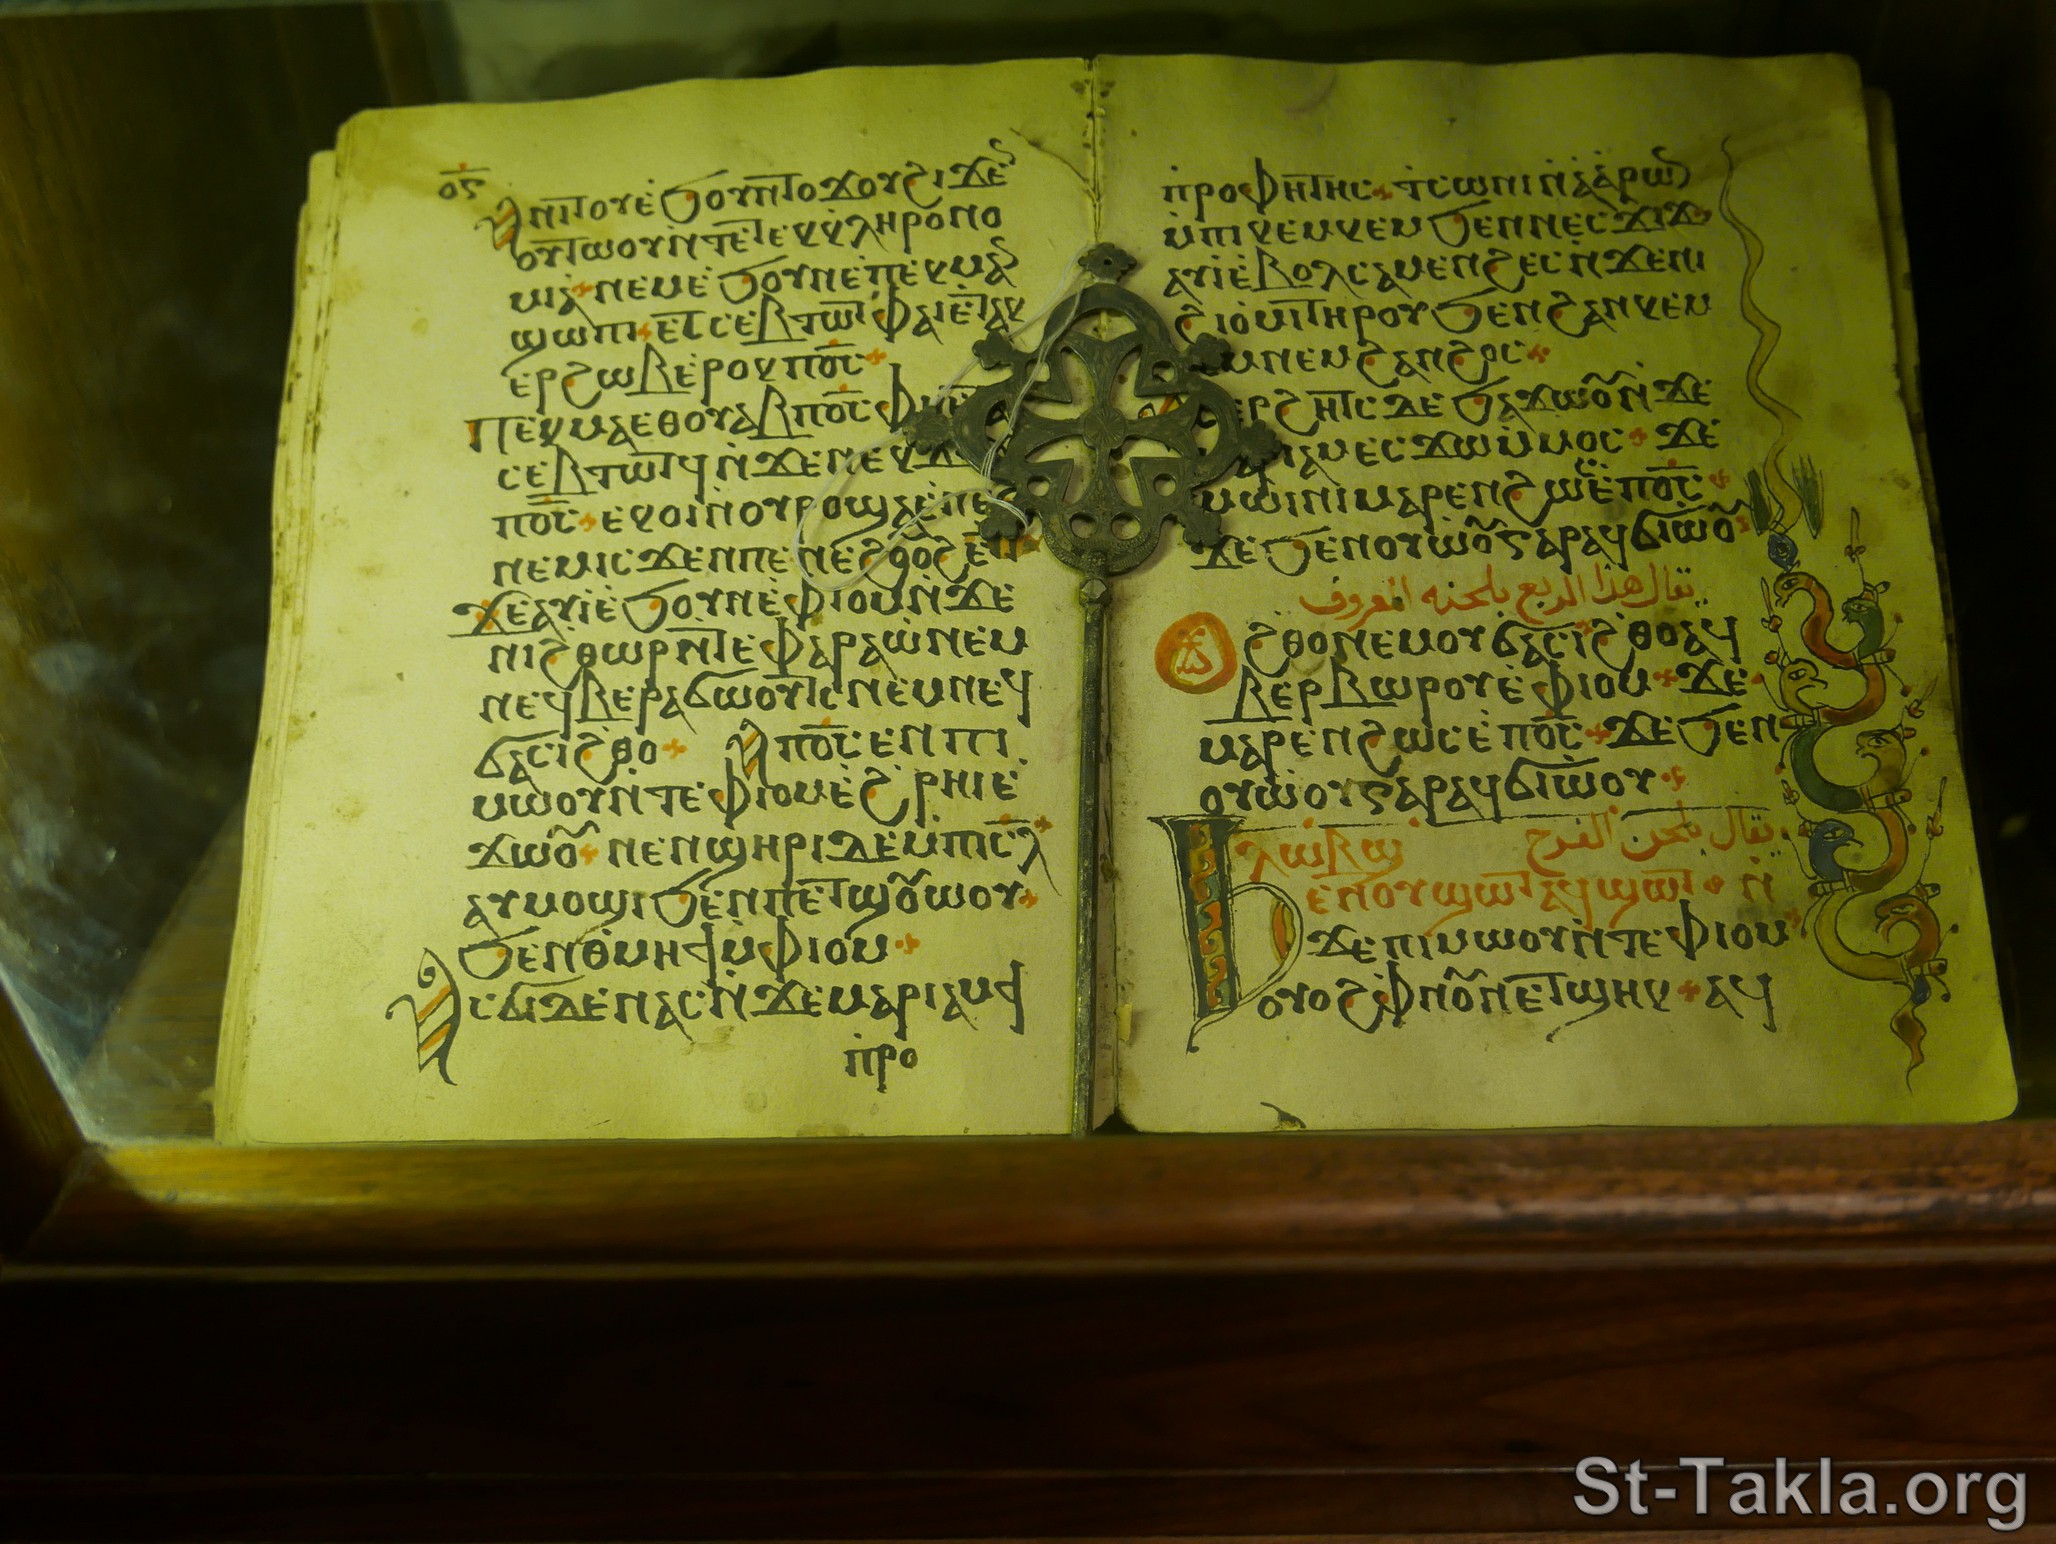 ⲟ̅ⲋ̅
ⲁⲛⲓⲧⲟⲩ ⲉ̀ϧⲟⲩⲛ ⲧⲟϫⲟⲩ ϩⲓϫⲉⲛ
ⲟⲩⲧⲱⲟⲩ ⲛ̀ⲧⲉ ⲧⲉⲕⲕ̀ⲗⲏⲣⲟⲛⲟ
ⲙⲓⲁ̀ ⲛⲉⲙ ⲉ̀ϧⲟⲩⲛ ⲉ̀ⲡⲉⲕⲙⲁⲛ
ϣⲱⲡⲓ ⲉⲧⲥⲉⲃⲧⲱⲧ ⲫⲁⲓ ⲉ̀ⲧⲁⲕ
ⲉⲣϩⲱⲃ ⲉⲣⲟϥ ⲡⲟ̅ⲥ̅
ⲡⲉⲕⲙⲁ ⲉⲑⲟⲩⲁⲃ ⲡⲟ̅ⲥ̅
ⲥⲉⲃⲧⲱⲧϥ ⲛ̀ϫⲉ
ⲡⲟ̅ⲥ̅ ⲉⲕⲟⲓ ⲛ̀ⲟⲩⲣⲟ ϣⲁ
ⲛⲉⲙ ⲓⲥϫⲉⲛ
ϫⲉ ⲁⲩⲓ̀ ⲉ̀ϧⲟⲩⲛ ⲉ̀ⲫⲓⲟⲙ ⲛ̀ϫⲉ
ⲛⲓϩⲑⲱⲣ ⲛ̀ⲧⲉ ⲫⲁⲣⲁⲱ̀ ⲛⲉⲙ
ⲛⲉϥⲃⲉⲣⲁϭⲱⲟⲩⲧⲥ ⲛⲉⲙ ⲛⲉϥ
ϭⲁⲥⲓϩⲑⲟ ⲁ ⲡⲟ̅ⲥ̅ ⲉⲛ ⲡⲓ
ⲙⲱⲟⲩ ⲛ̀ⲧⲉ ⲫⲓⲟⲙ ⲉ̀ϩ̀ⲣⲏⲓ ⲉ̀
ϫⲱⲟⲩ ⲛⲉⲛϣⲏⲣⲓ ⲇⲉ ⲙ̀ⲡⲓⲥ̅ⲗ̅
ⲁⲩⲙⲟϣⲓ ϧⲉⲛ ⲡⲉⲧϣⲟⲩⲱⲟⲩ
ϧⲉⲛ ⲑ̀ⲙⲏϯ ⲙ̀ⲫⲓⲟⲙ
ⲁⲥϭⲓ ⲇⲉ ⲛⲁⲥ ⲛ̀ϫⲉ ⲙⲁⲣⲓⲁⲙ ϯ
ⲡ̀ⲣⲟ
ⲡ̀ⲣⲟⲫⲏⲧⲏⲥ ⲧⲥⲱⲛⲓ ⲛ̀ⲁ̀ⲁ̀ⲣⲱⲛ
ⲙ̀ⲡⲓⲕⲉⲙⲕⲉⲙ ϧⲉⲛ ⲛⲉⲥϫⲓϫ
ⲁⲩⲓ̀ ⲉ̀ⲃⲟⲗ ⲥⲁⲙⲉⲛϩⲉⲥ ⲛ̀ϫⲉ ⲛⲓ
ϩⲓⲟ̀ⲙⲓ ⲧⲏⲣⲟⲩ ϧⲉⲛ ϩⲁⲛⲕⲉⲙ
ⲛⲉⲙ ϩⲁⲛϩⲱⲥ
ⲇⲉ ϧⲁϫⲱⲟⲩ ⲛ̀ϫⲉ
ⲉⲥϫⲱ ⲙ̀ⲙⲟⲥ ϫⲉ
ⲙⲁⲣⲉⲛϩⲱⲥ ⲉ̀ⲡⲟ̅ⲥ̅
ϫⲉ ϧⲉⲛ ⲟⲩⲱ̀ⲟⲩ ⲅⲁⲣ ⲁϥϭⲓⲱ̀ⲟⲩ
يقال هذا الربع بلحنه المعروف
ϩⲑⲟ ⲛⲉⲙ ⲟⲩϭⲁⲥⲓϩⲑⲟ ⲁϥ
ⲃⲉⲣⲃⲱⲣⲟⲩ ⲉ̀ⲫⲓⲟⲙ ϫⲉ
ⲙⲁⲣⲉⲛϩⲱⲥ ⲉ̀ⲡⲟ̅ⲥ̅ ϫⲉ ϧⲉⲛ
ⲟⲩⲱ̀ⲟⲩ ⲅⲁⲣ ⲁϥϭⲓⲱ̀ⲟⲩ
ⲗⲱⲃϣ يقال بلحن الفرح
ϧⲉⲛ ⲟⲩϣⲱⲧ ⲁϥϣⲱⲧ ⲛ̀
ϫⲉ ⲡⲓⲙⲱⲟⲩ ⲛ̀ⲧⲉ ⲫⲓⲟⲙ
ⲟⲩⲟϩ ⲫⲛⲟⲩⲛ ⲉⲧϣⲏⲕ ⲁϥ
St-Takla.org